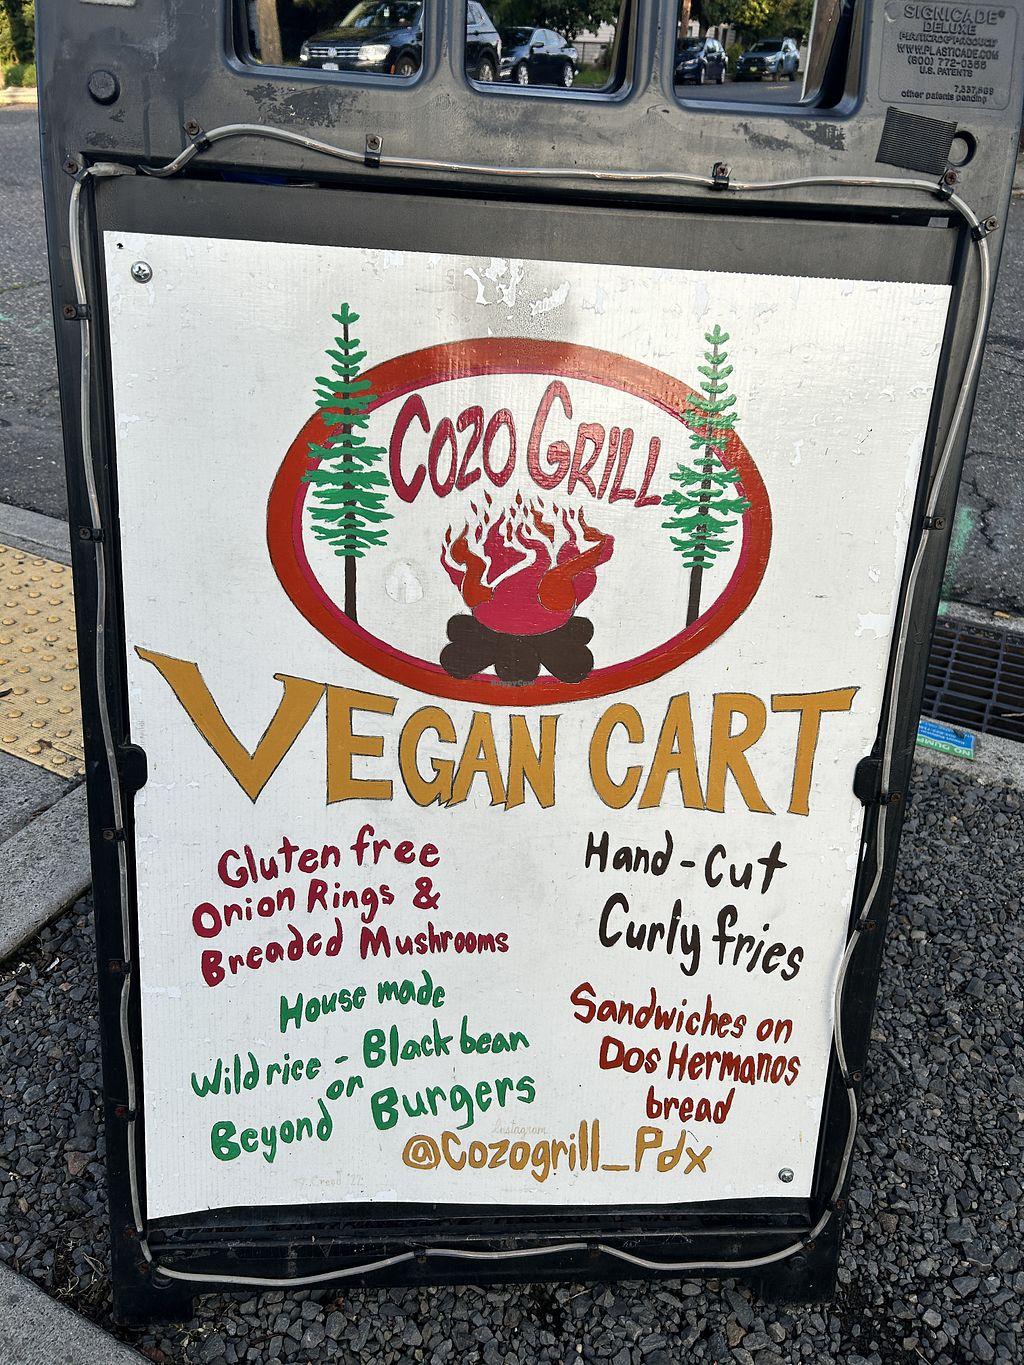 SIGNICADE®
DELUXE
PLASTICADE® PRODUCT
WWW.PLASTICADE.COM
(800) 772-0355
U.S. PATENTS
7,337,569
other patents pending
COZO GRILL
HappyCow
VEGAN CART
Gluten free
Onion Rings &
Breaded Mushrooms
House made
Wild rice - Black bean
or
Beyond Burgers
Hand-Cut
Curly fries
Sandwiches on
Dos Hermanos
bread
Instagram
@Cozogrill_Pdx
Creed '22
NO DUMP